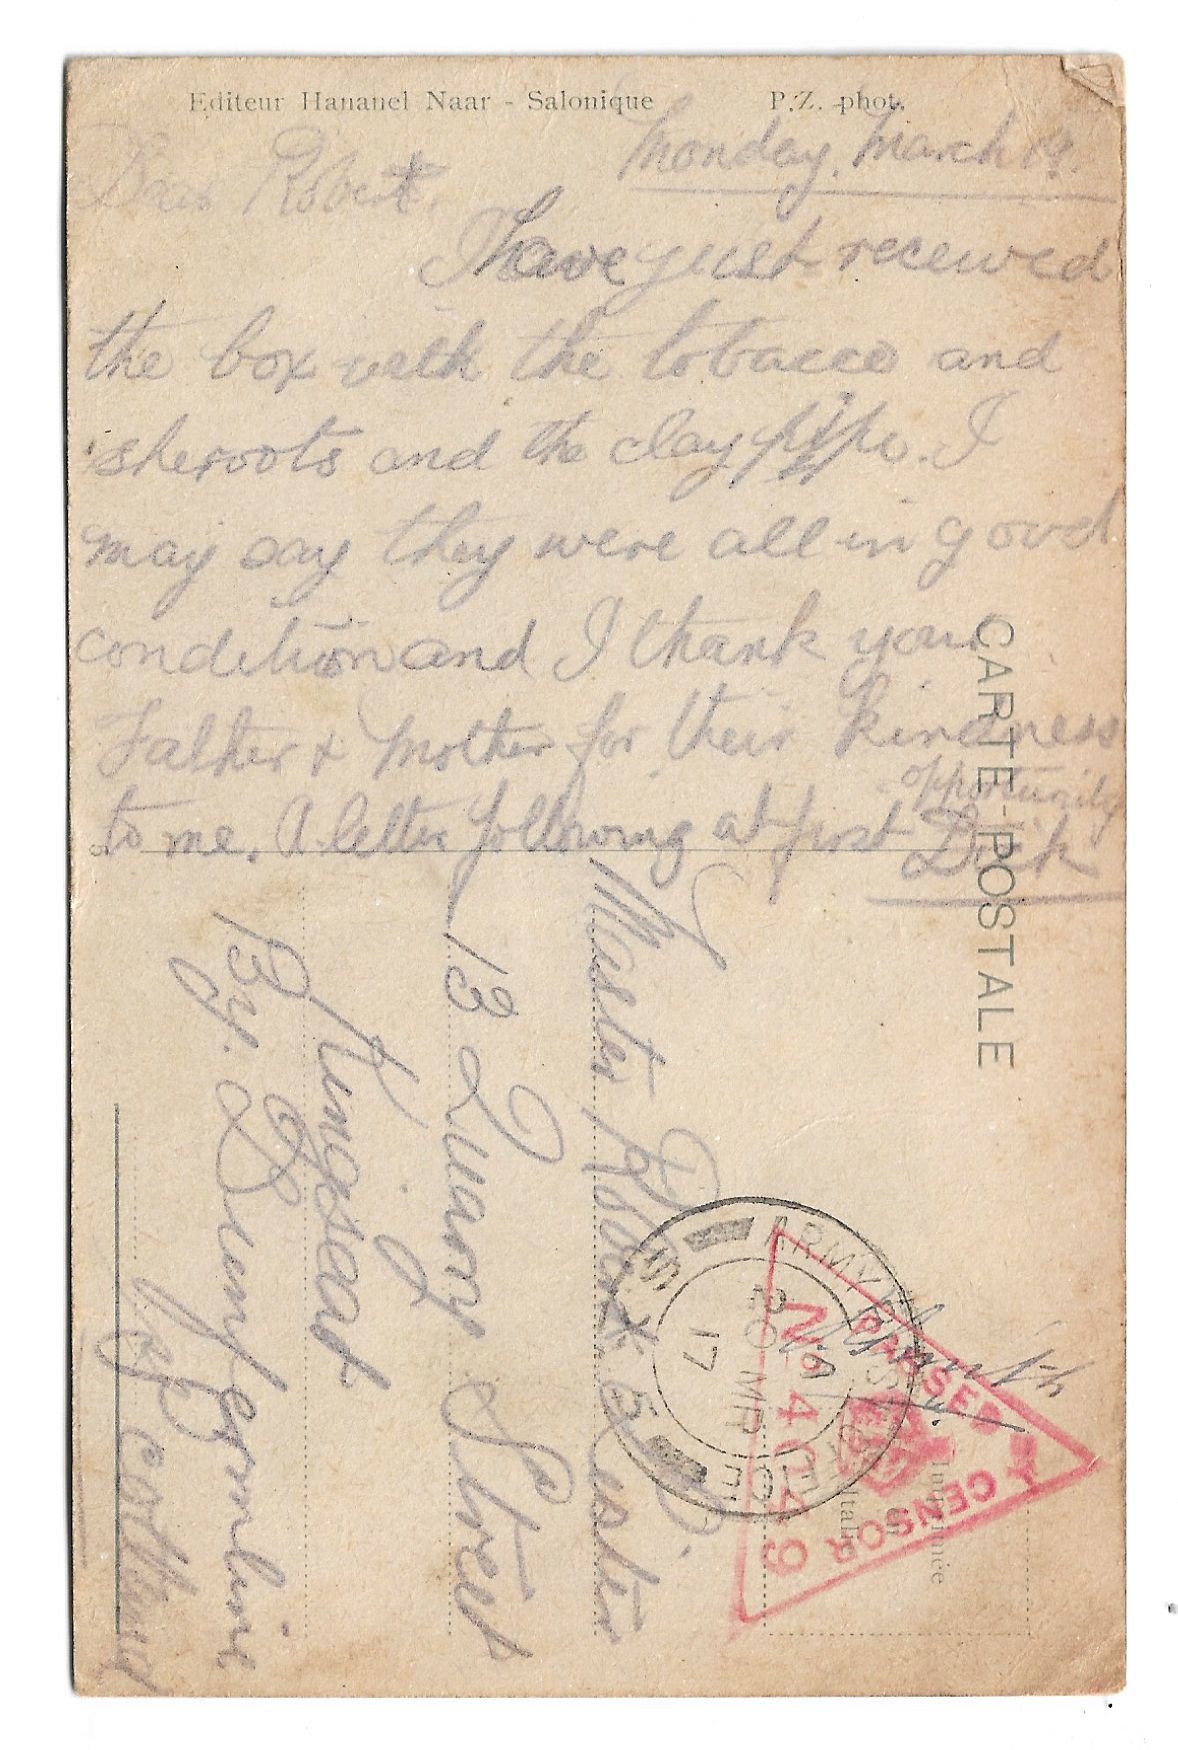 Editeur Hananel Naar - Salonique P.Z. phot.
Monday, March 19.
Dear Robert.
I have just received
the box with the tobacco and
sheroots and the clay pipe. I
may say they were all in good
condition and I thank your
Father & Mother for their kindness
to me. A letter following at first
opportunity
Dick
CARTE-POSTALE
Master Robert
13 Quarry Street
Kingseat
By. Dunfermline
Scotland
ARMY
20 MR
17
PASSED BY CENSOR
No 4049
Imprimé
Italie